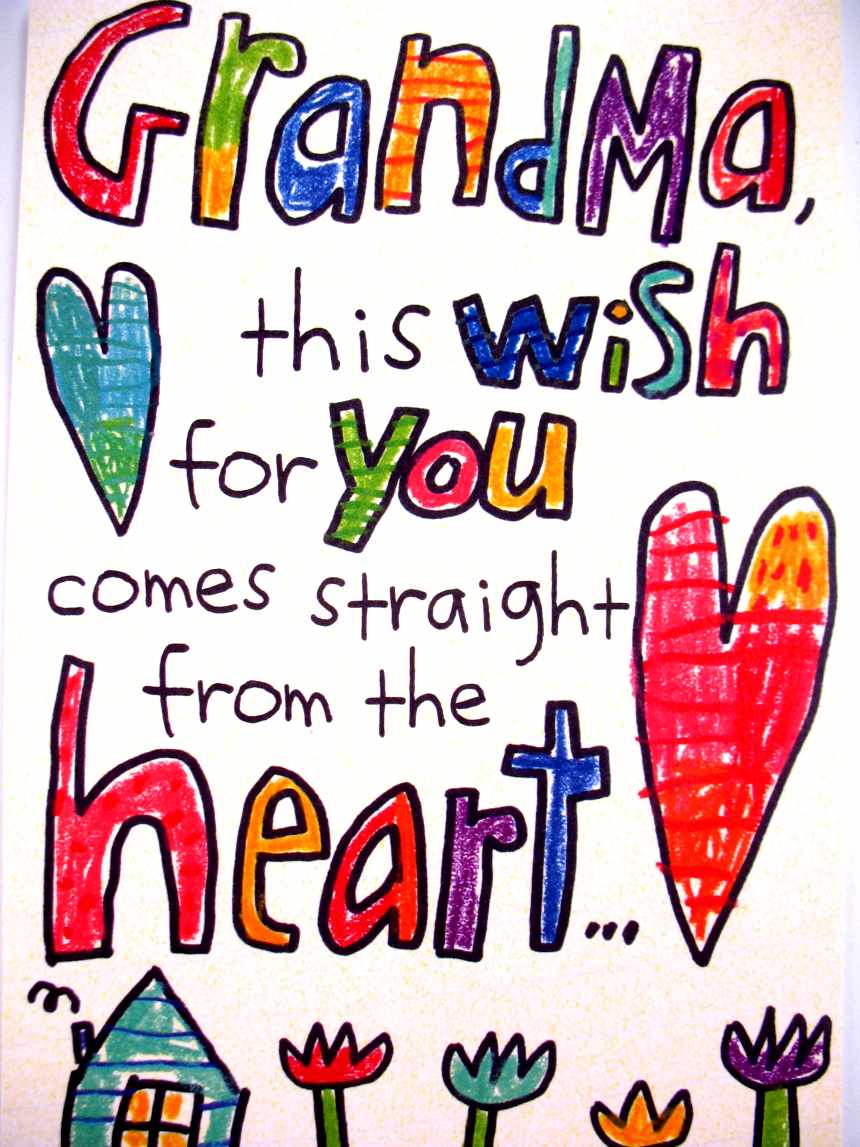 GrandMa,
this wish
for you
comes straight
from the
heart...